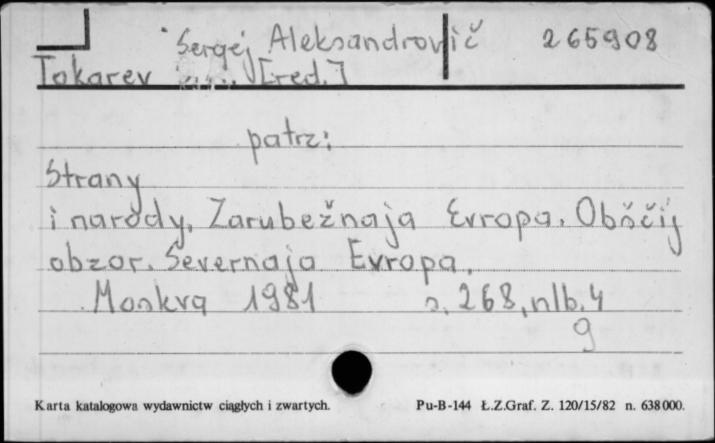 Sergej Aleksandrovič 265908
Tokarev [red.]
patrz:
Strany
i narody. Zarubežnaja Evropa. Obščij
obzor. Severnaja Evropa.
Moskva 1981 s. 268, nlb. 4
g
Karta katalogowa wydawnictw ciągłych i zwartych. Pu-B-144 Ł.Z.Graf. Z. 120/15/82 n. 638000.